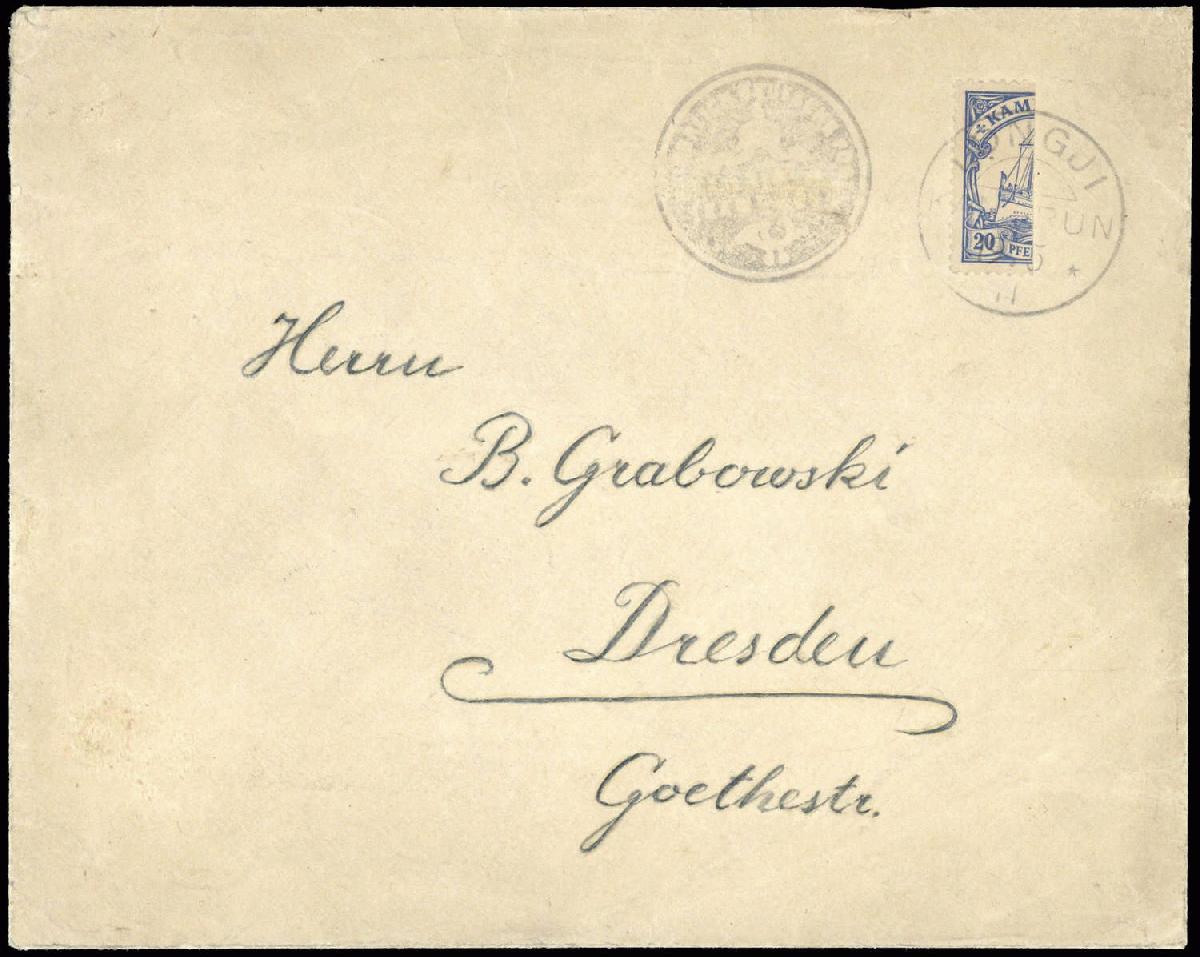 KAM
20 PFE
GJI
RUN
Herrn
B. Grabowski
Dresden
Goethestr.